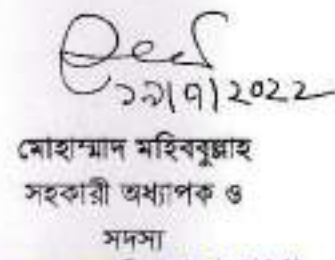 ১৯|৭|2022
মোহাম্মাদ মহিববুল্লাহ
সহকারী অধ্যাপক ও
সদস্য